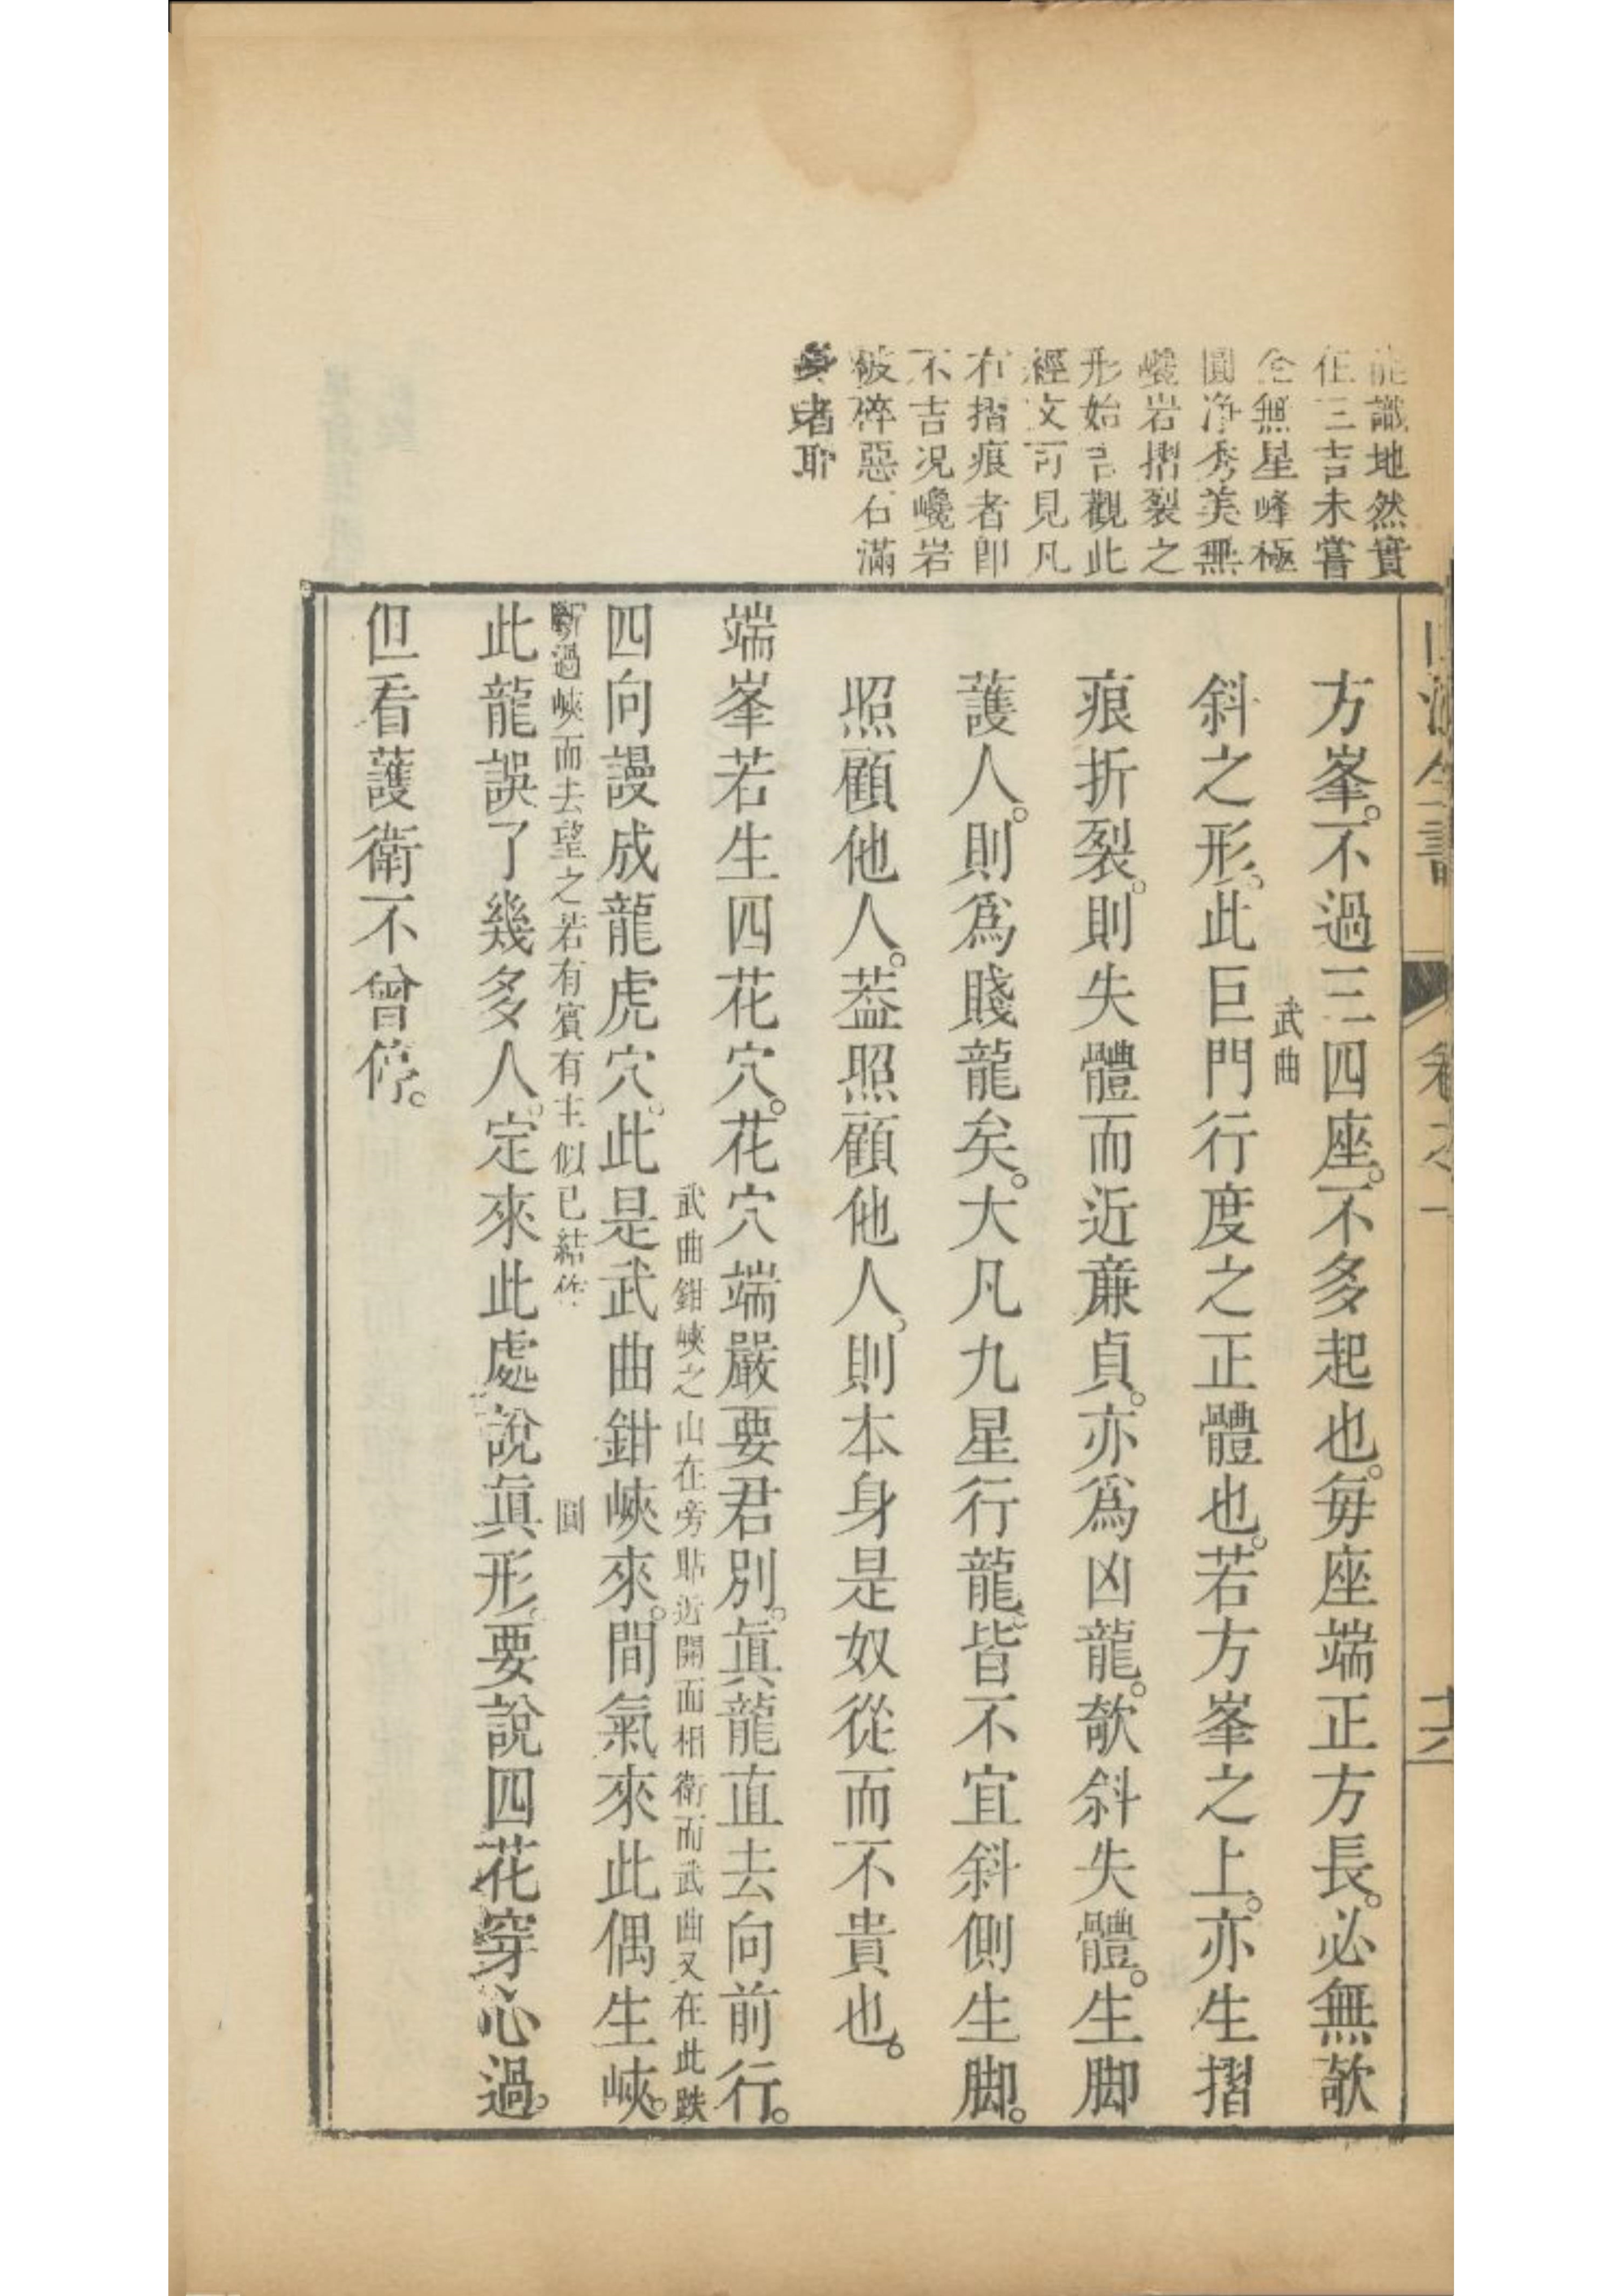 能識地然實
但三吉未嘗
全無星峰極
圓净秀美無
巉岩摺裂之
形始吉觀此
經文可見凡
有摺痕者即
不吉况巉岩
破碎惡石滿
身者耶
卷之一
十六
方峯。不過三四座。不多起也。毎座端正方長。必無欹
武曲
斜之形。此巨門行度之正體也。若方峯之上。亦生摺
痕折裂。則失體而近亷貞。亦爲凶龍。欹斜失體。生脚
護人。則爲賤龍矣。大凡九星行龍。皆不宜斜側生脚。
照顧他人。葢照顧他人。則本身是奴從而不貴也。
端峯若生四花穴。花穴端嚴要君別。眞龍直去向前行。
武曲鉗峽之山在旁貼近開面相衛而武曲又在此跌
四向謾成龍虎穴。此是武曲鉗峽來。間氣來此偶生峽。
斷過峽而去望之若有賓有主似已結作
圓
此龍誤了幾多人。定來此處說眞形。要說四花穿心過。
但看護衛不曾停。